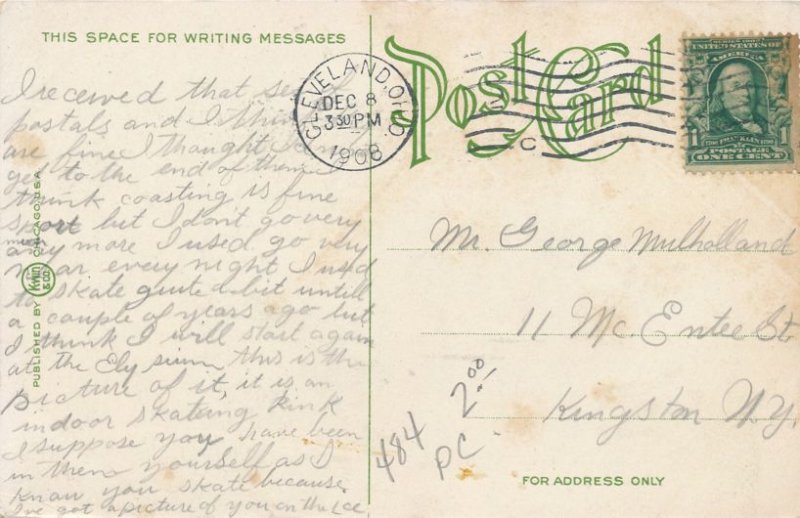 THIS SPACE FOR WRITING MESSAGES
I received that
postals and I think
are fine I thought I
ged to the end of them I
think coasting is fine
sport but I don't go very
much any more I used go very
near every night I used
to skate quite a bit untill
a couple of years ago but
I think I will start again
at the Elysium this is the
picture of it, it is an
indoor skating rink
I suppose you have been
in them yourself as I
know you skate because
I've got a picture of you on the Ice
PUBLISHED BY
CHICAGO U.S.A.
Post Card
CLEVELAND, OHIO
DEC 8
3 30 PM
1908
C
SERIES 1902
UNITED STATES OF AMERICA
1
FRANKLIN
POSTAGE
ONE CENT
Mr. George Mulholland
11 Mc. Entee St.
Kingston N.Y.
484
2.00
PC
FOR ADDRESS ONLY